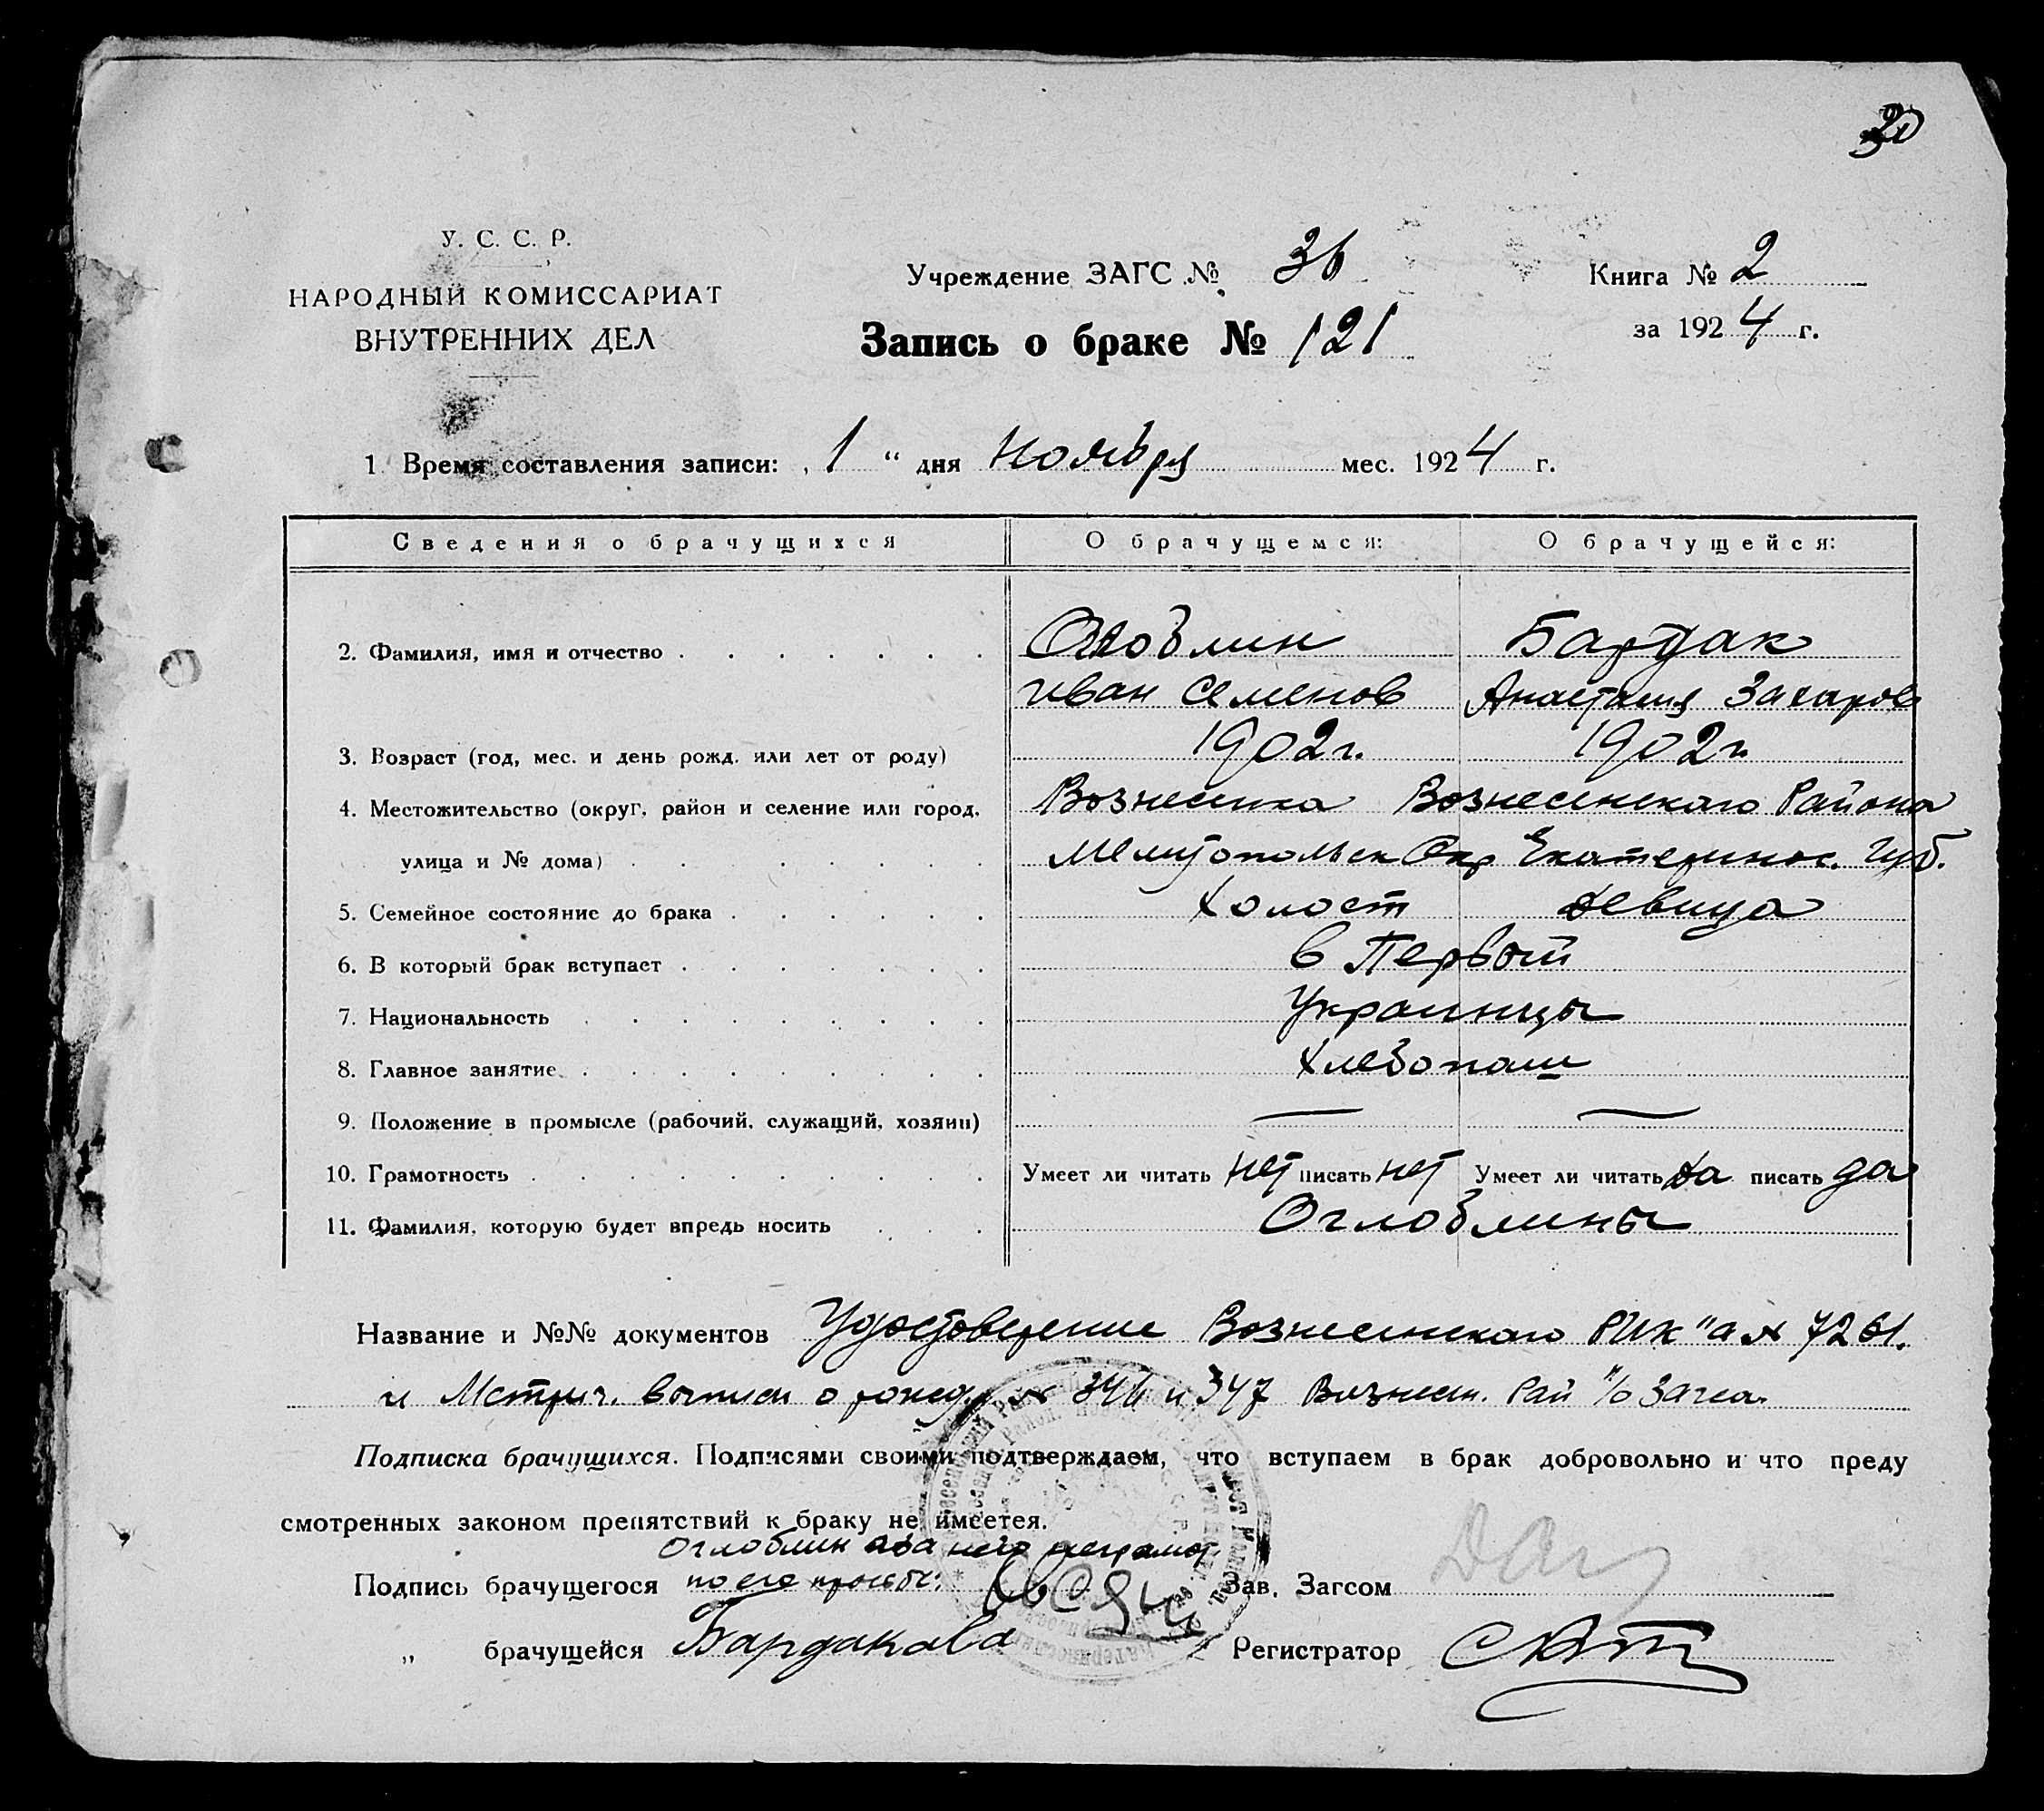 30
У. С. С. Р.
НАРОДНЫЙ КОМИССАРИАТ
ВНУТРЕННИХ ДЕЛ
Учреждение ЗАГС № 36
Книга № 2
Запись о браке № 121
за 1924 г.
1. Время составления записи: „1“ дня Ноября мес. 1924 г.
Сведения о брачущихся О брачущемся: О брачущейся:
2. Фамилия, имя и отчество Оглоблин Бардак
Иван Семенов Анастасия Захаров
3. Возраст (год, мес. и день рожд. или лет от роду) 1902 г. 1902 г.
4. Местожительство (округ, район и селение или город, Вознесенка Вознесенского Района
улица и № дома) Мелитопольск Окр Екатеринос. Губ.
5. Семейное состояние до брака холост девица
6. В который брак вступает в Первый
7. Национальность Украинцы
8. Главное занятие Хлебопаш
9. Положение в промысле (рабочий, служащий, хозяин) — —
10. Грамотность Умеет ли читать нет писать нет Умеет ли читать да писать да
11. Фамилия, которую будет впредь носить Оглоблины
Название и №№ документов Удостоверение Вознесенского РИК"а № 7261.
и Метрич. выписи о рожд. № 346 и 347 Вознесен. Рай Загса
Подписка брачущихся. Подписями своими подтверждаем, что вступаем в брак добровольно и что преду
смотренных законом препятствий к браку не имеется.
Оглоблин а за него неграмот.
Подпись брачущегося по его просьбе: Зав. Загсом
„ брачущейся Бардакова Регистратор